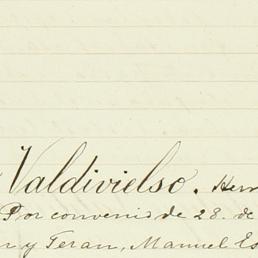 Valdivielso. Herm
Por convenio de 28. de
r y Teran, Manuel Es